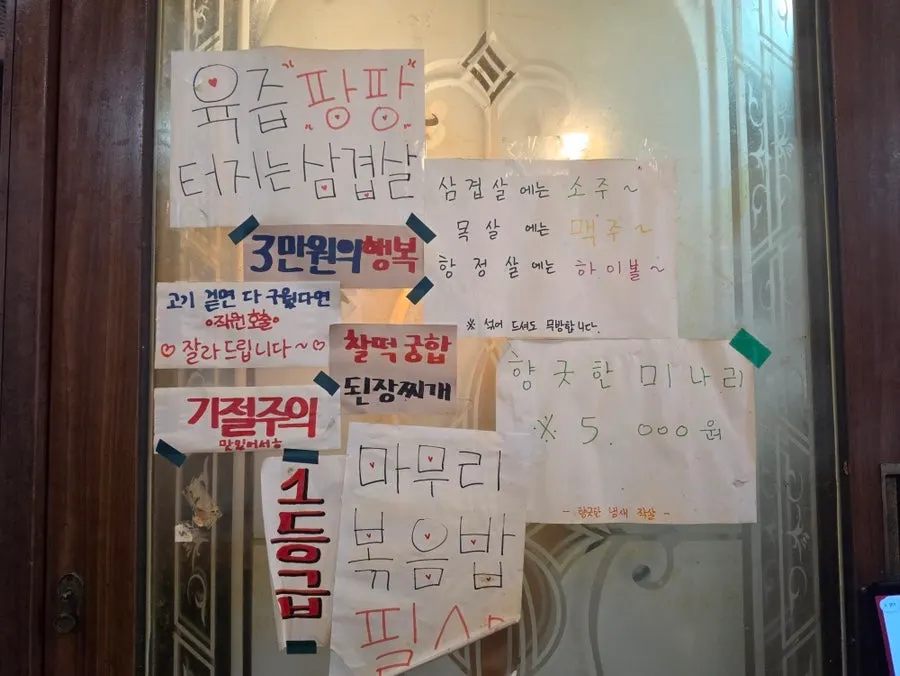 육즙 "팡팡"
터지는 삼겹살
삼겹살에는 소주~
목살에는 맥주~
항정살에는 하이볼~
※ 섞어 드셔도 무방합니다.
3만원의 행복
고기 겉면 다 구웠다면
직원호출
♡ 잘라드립니다~♡
찰떡궁합
된장찌개
기절주의
맛있어서ㅎ
향긋한 미나리
※ 5.000원
- 향긋한 냄새 작살 -
1등급
마무리
볶음밥
필수